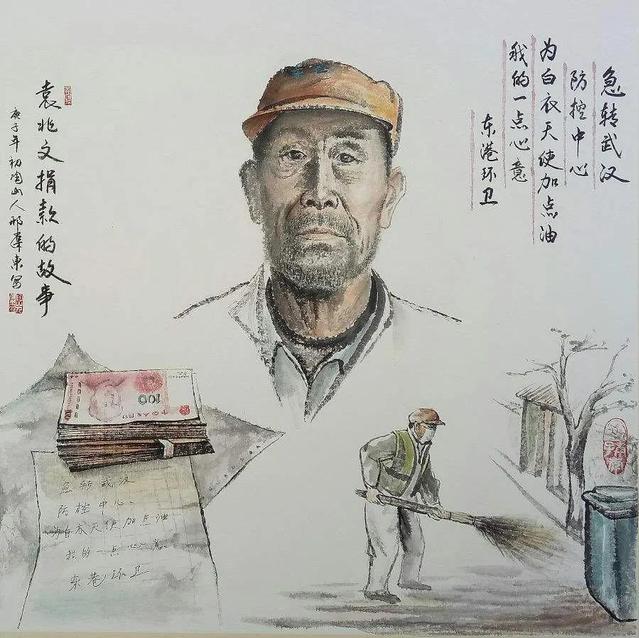 急转武汉
防控中心
为白衣天使加点油
我的一点心意
东港环卫
袁兆文捐款的故事
庚子年初 山人邢 东写
100
急转武汉
防控中心,
为白衣天使加点油
我的一点心意
东巷环卫